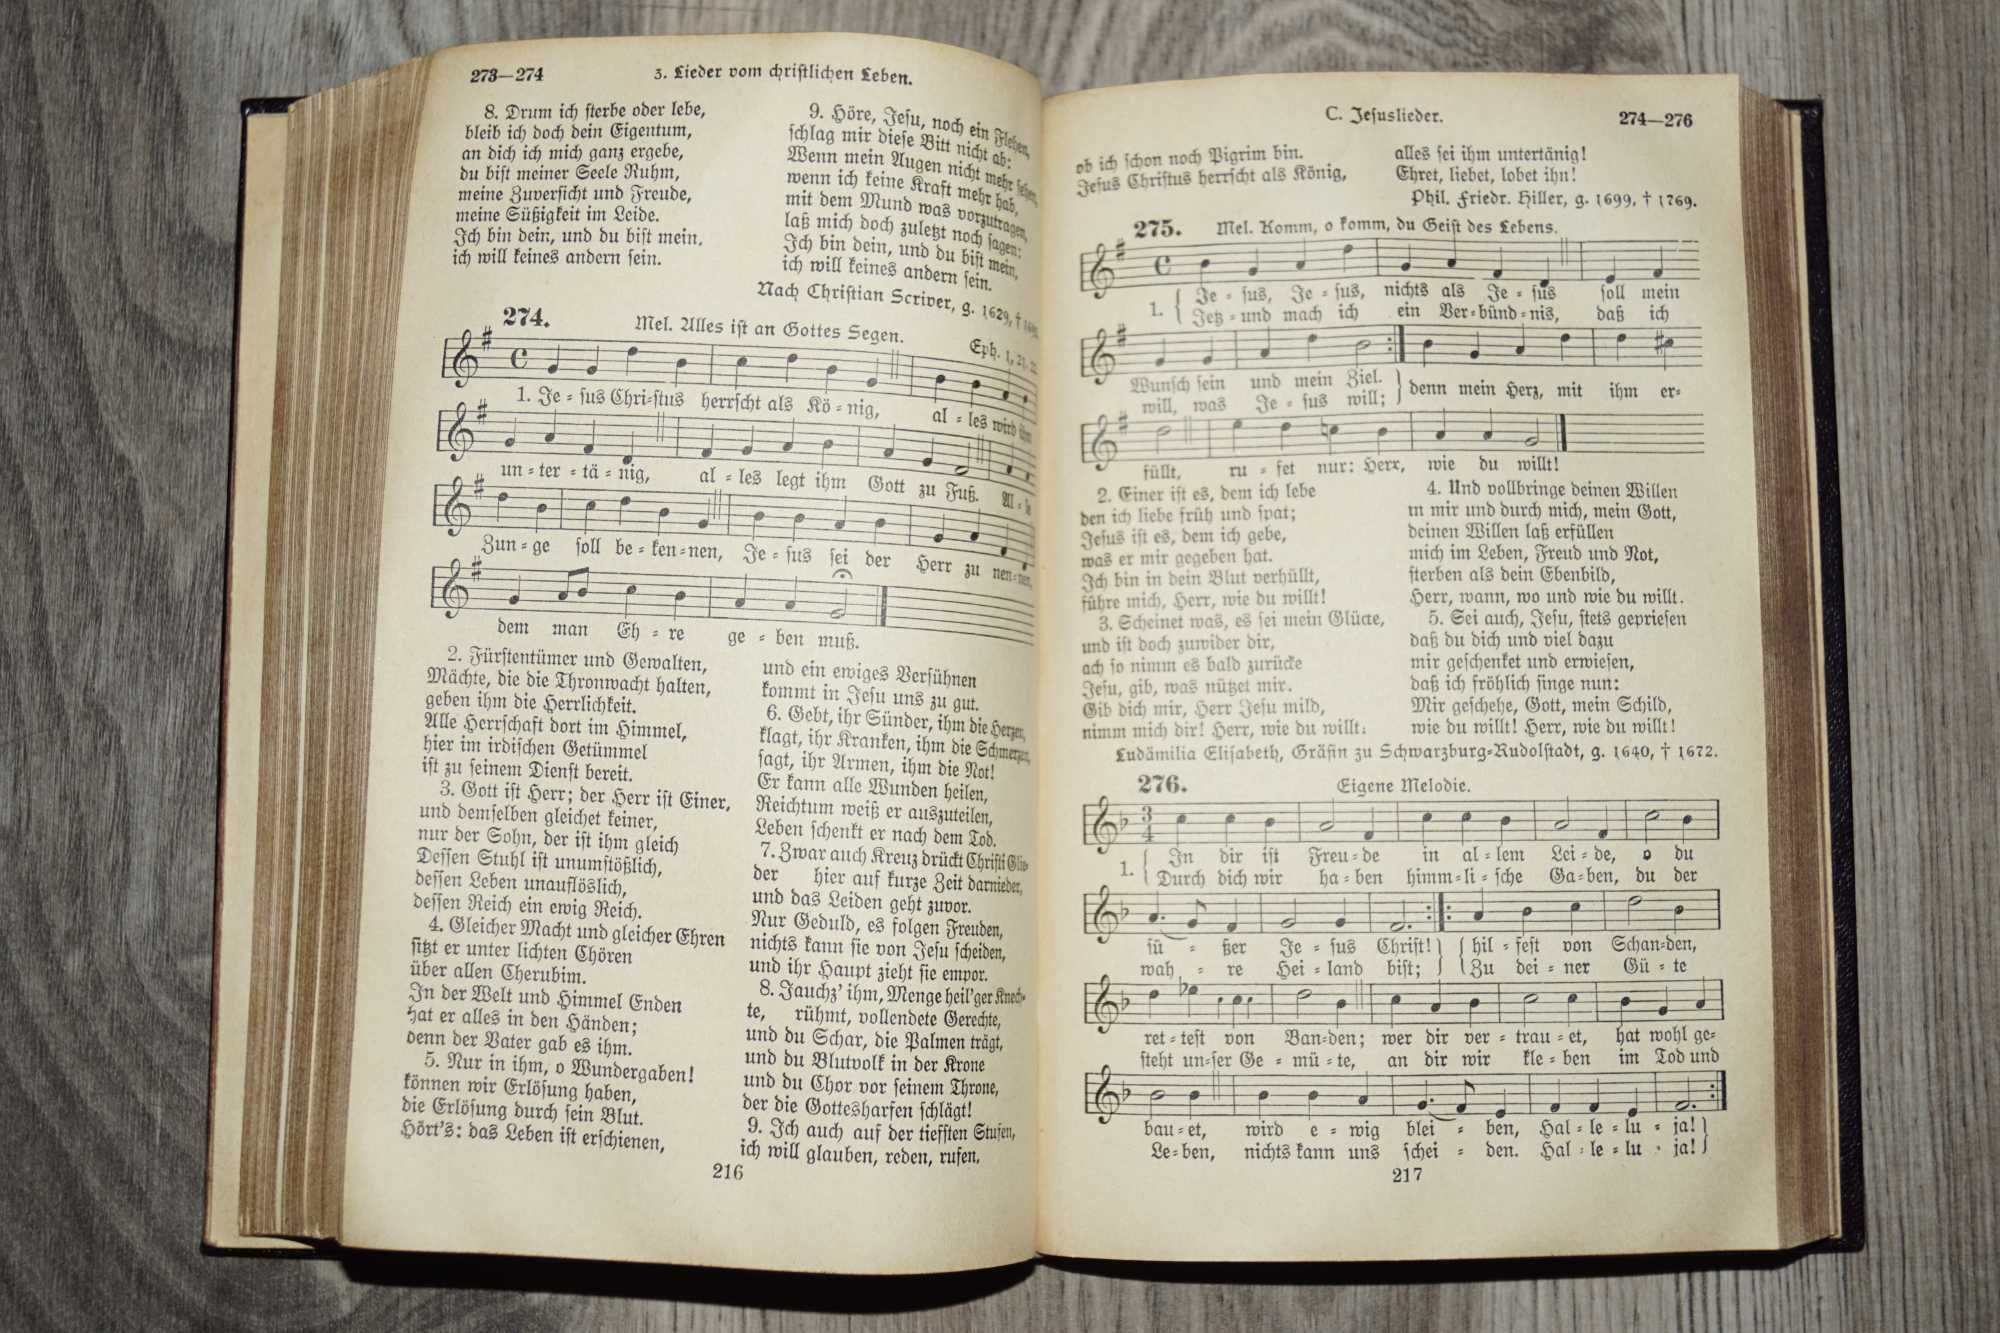 273—274
3. Lieder vom christlichen Leben.
8. Drum ich sterbe oder lebe,
bleib ich doch dein Eigentum,
an dich ich mich ganz ergebe,
du bist meiner Seele Ruhm,
meine Zuversicht und Freude,
meine Süßigkeit im Leide.
Ich bin dein, und du bist mein,
ich will keines andern sein.
9. Höre, Jesu, noch ein Flehen,
schlag mir diese Bitt nicht ab:
Wenn mein Augen nicht mehr sehen,
wenn ich keine Kraft mehr hab,
mit dem Mund was vorzutragen,
laß mich doch zuletzt noch sagen:
Ich bin dein, und du bist mein,
ich will keines andern sein.
Nach Christian Scriver, g. 1629, †
274.
Mel. Alles ist an Gottes Segen.
Eph. 1, 21.
1. Je-sus Chri-stus herrscht als Kö-nig, al-les wird ihm
un-ter-tä-nig, al-les legt ihm Gott zu Fuß. Al-le
Zun-ge soll be-ken-nen, Je-sus sei der Herr zu nen-nen,
dem man Eh-re ge-ben muß.
2. Fürstentümer und Gewalten,
Mächte, die die Thronwacht halten,
geben ihm die Herrlichkeit.
Alle Herrschaft dort im Himmel,
hier im irdischen Getümmel
ist zu seinem Dienst bereit.
3. Gott ist Herr; der Herr ist Einer,
und demselben gleichet keiner,
nur der Sohn, der ist ihm gleich
Dessen Stuhl ist unumstößlich,
dessen Leben unauflöslich,
dessen Reich ein ewig Reich.
4. Gleicher Macht und gleicher Ehren
sitzt er unter lichten Chören
über allen Cherubim.
In der Welt und Himmel Enden
hat er alles in den Händen;
denn der Vater gab es ihm.
5. Nur in ihm, o Wundergaben!
können wir Erlösung haben,
die Erlösung durch sein Blut.
Hört's: das Leben ist erschienen,
und ein ewiges Versühnen
kommt in Jesu uns zu gut.
6. Gebt, ihr Sünder, ihm die Herzen,
klagt, ihr Kranken, ihm die Schmerzen,
sagt, ihr Armen, ihm die Not!
Er kann alle Wunden heilen,
Reichtum weiß er auszuteilen,
Leben schenkt er nach dem Tod.
7. Zwar auch Kreuz drückt Christi Glie-
der hier auf kurze Zeit darnieder,
und das Leiden geht zuvor.
Nur Geduld, es folgen Freuden,
nichts kann sie von Jesu scheiden,
und ihr Haupt zieht sie empor.
8. Jauchz' ihm, Menge heil'ger Knech-
te, rühmt, vollendete Gerechte,
und du Schar, die Palmen trägt,
und du Blutvolk in der Krone
und du Chor vor seinem Throne,
der die Gottesharfen schlägt!
9. Ich auch auf der tiefsten Stufen,
ich will glauben, reden, rufen,
216
C. Jesuslieder.
274—276
ob ich schon noch Pigrim bin.
Jesus Christus herrscht als König,
alles sei ihm untertänig!
Ehret, liebet, lobet ihn!
Phil. Friedr. Hiller, g. 1699, † 1769.
275.
Mel. Komm, o komm, du Geist des Lebens.
1. Je-sus, Je-sus, nichts als Je-sus soll mein
Jetz-und mach ich ein Ver-bünd-nis, daß ich
Wunsch sein und mein Ziel. denn mein Herz, mit ihm er-
will, was Je-sus will;
füllt, ru-fet nur: Herr, wie du willt!
2. Einer ist es, dem ich lebe
den ich liebe früh und spat;
Jesus ist es, dem ich gebe,
was er mir gegeben hat.
Ich bin in dein Blut verhüllt,
führe mich, Herr, wie du willt!
3. Scheinet was, es sei mein Glücke,
und ist doch zuwider dir,
ach so nimm es bald zurücke
Jesu, gib, was nützet mir.
Gib dich mir, Herr Jesu mild,
nimm mich dir! Herr, wie du willt.
4. Und vollbringe deinen Willen
in mir und durch mich, mein Gott,
deinen Willen laß erfüllen
mich im Leben, Freud und Not,
sterben als dein Ebenbild,
Herr, wann, wo und wie du willt.
5. Sei auch, Jesu, stets gepriesen
daß du dich und viel dazu
mir geschenket und erwiesen,
daß ich fröhlich singe nun:
Mir geschehe, Gott, mein Schild,
wie du willt! Herr, wie du willt!
Ludämilia Elisabeth, Gräfin zu Schwarzburg-Rudolstadt, g. 1640, † 1672.
276.
Eigene Melodie.
1. In dir ist Freu-de in al-lem Lei-de, o du
Durch dich wir ha-ben himm-li-sche Ga-ben, du der
sü-ßer Je-sus Christ! hil-fest von Schan-den,
wah-re Hei-land bist; Zu dei-ner Gü-te
ret-test von Ban-den; wer dir ver-trau-et, hat wohl ge-
steht un-ser Ge-mü-te, an dir wir kle-ben im Tod und
bau-et, wird e-wig blei-ben, Hal-le-lu-ja!
Le-ben, nichts kann uns schei-den. Hal-le-lu-ja!
217